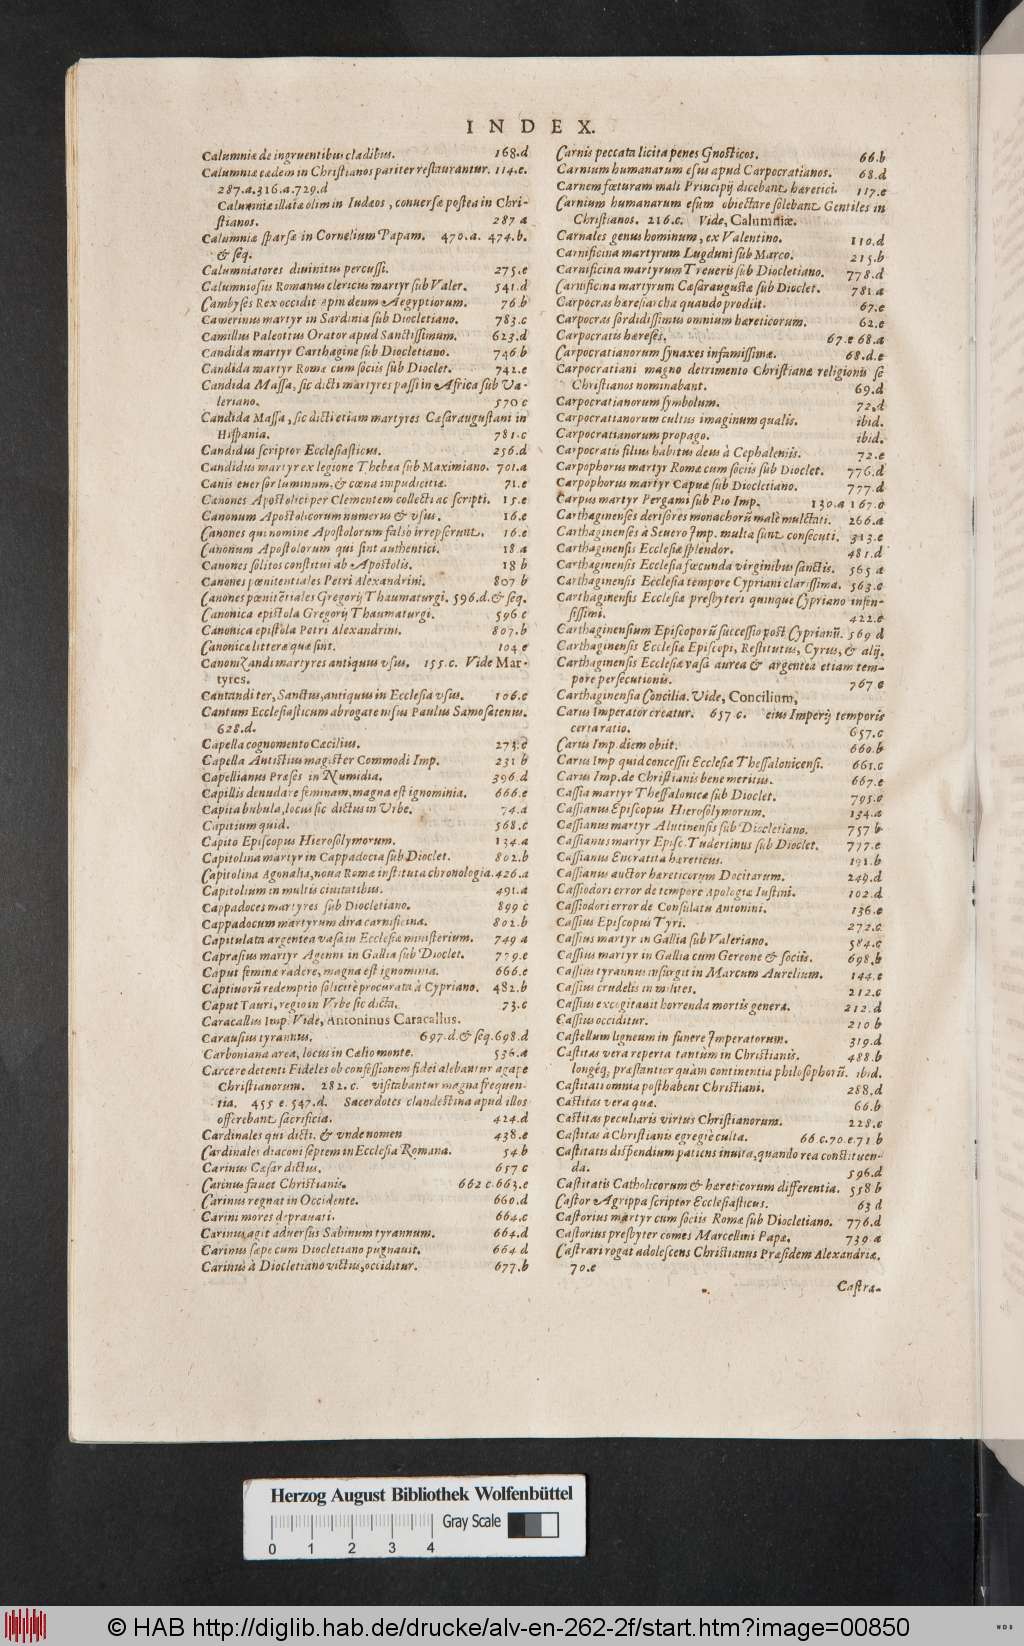 INDEX.
Calumniæ de ingruentibus cladibus. 168.d
Calumniæ eædem in Christianos pariter restaurantur. 114.e.
287.a.316.a.729.d
Calumniæ illatæ olim in Iudæos, conuersæ postea in Chri-
stianos. 287 a
Calumniæ sparsæ in Cornelium Papam. 470.a. 474.b.
& seq.
Calumniatores diuinitus percussi. 275.e
Calumniosius Romanus clericus martyr sub Valer. 541.d
Cambyses Rex occidit apin deum Aegyptiorum. 76 b
Camerinus martyr in Sardinia sub Diocletiano. 783.c
Camillus Paleottus Orator apud Sanctissimum. 623.d
Candida martyr Carthagine sub Diocletiano. 746 b
Candida martyr Romæ cum sociis sub Dioclet. 742.e
Candida Massa, sic dicti martyres passi in Africa sub Va-
leriano. 570 c
Candida Massa, sic dicti etiam martyres Cæsaraugustani in
Hispania. 781.c
Candidus scriptor Ecclesiasticus. 256.d
Candidus martyr ex legione Thebæa sub Maximiano. 701.a
Canis euersor luminum, & cœna impudicitiæ. 71.e
Canones Apostolici per Clementem collecti ac scripti. 15.e
Canonum Apostolicorum numerus & vsus. 16.e
Canones qui nomine Apostolorum falsò irrepserunt. 16.e
Canonum Apostolorum qui sint authentici. 18 a
Canones solitos constitui ab Apostolis. 18 b
Canones pœnitentiales Petri Alexandrini. 807 b
Canones pœnitētiales Gregorij Thaumaturgi. 596.d.& seq.
Canonica epistola Gregorij Thaumaturgi. 596 c
Canonica epistola Petri Alexandrini. 807.b
Canonicæ litteræ quæ sint. 104 e
Canonizandi martyres antiquus vsus. 155.c. Vide Mar-
tyres.
Cantandi ter, Sanctus, antiquus in Ecclesia vsus. 106.c
Cantum Ecclesiasticum abrogate nisus Paulus Samosatenus.
628.d.
Capella cognomento Cæcilius. 273.c
Capella Antistius magister Commodi Imp. 231 b
Capellianus Præses in Numidia. 396.d
Capillis denudare feminam, magna est ignominia. 666.e
Capita bubula, locus sic dictus in Vrbe. 74.a
Capitium quid. 568.c
Capito Episcopus Hierosolymorum. 134.a
Capitolina martyr in Cappadocia sub Dioclet. 802.b
Capitolina Agonalia, noua Romæ instituta chronologia. 426.a
Capitolium in multis ciuitatibus. 491.a
Cappadoces martyres sub Diocletiano. 899 c
Cappadocum martyrum dira carnificina. 802.b
Capitulata argentea vasa in Ecclesiæ ministerium. 749 a
Caprasius martyr Agenni in Gallia sub Dioclet. 779.e
Caput feminæ radere, magna est ignominia. 666.e
Captiuorū redemptio solicitè procurata à Cypriano. 482.b
Caput Tauri, regio in Vrbe sic dicta. 73.c
Caracallus Imp. Vide, Antoninus Caracallus.
Carausius tyrannus. 697.d.& seq.698.d
Carboniana area, locus in Cælio monte. 536.a
Carcere detenti Fideles ob confessionem fidei alebantur agape
Christianorum. 282.c. visitabantur magna frequen-
tia. 455 e. 547.d. Sacerdotes clandestina apud illos
offerebant sacrificia. 424.d
Cardinales qui dicti. & vnde nomen 438.e
Cardinales diaconi septem in Ecclesia Romana. 54 b
Carinus Cæsar dictus. 657 c
Carinus fauet Christianis. 662 c.663.e
Carinus regnat in Occidente. 660.d
Carini mores deprauati. 664.c
Carinus agit aduersus Sabinum tyrannum. 664.d
Carinus sæpe cum Diocletiano pugnauit. 664 d
Carinus à Diocletiano victus, occiditur. 677.b
Carnis peccata licita penes Gnosticos. 66.b
Carnium humanarum esus apud Carpocratianos. 68.d
Carnem fœturam mali Principij dicebant hæretici. 117.e
Carnium humanarum esum obiectare solebant Gentiles in
Christianos. 216.c. Vide, Calumniæ.
Carnales genus hominum, ex Valentino. 110.d
Carnificina martyrum Lugduni sub Marco. 215.b
Carnificina martyrum Treueris sub Diocletiano. 778.d
Carnificina martyrum Cæsaraugustæ sub Dioclet. 781.a
Carpocras hæresiarcha quando prodiit. 67.e
Carpocras sordidissimus omnium hæreticorum. 62.e
Carpocratis hæreses. 67.e 68.a
Carpocratianorum synaxes infamissimæ. 68.d.e
Carpocratiani magno detrimento Christianæ religionis se
Christianos nominabant. 69.d
Carpocratianorum symbolum. 72.d
Carpocratianorum cultus imaginum qualis. ibid.
Carpocratianorum propago. ibid.
Carpocratis filius habitus deus à Cephaleniis. 72.e
Carpophorus martyr Romæ cum sociis sub Dioclet. 776.d
Carpophorus martyr Capuæ sub Diocletiano. 777.d
Carpus martyr Pergami sub Pio Imp. 130.a 167.c
Carthaginenses derisores monachorū malè mulctati. 266.a
Carthaginenses à Seuero Imp. multa sunt consecuti. 313.e
Carthaginensis Ecclesiæ splendor. 481.d
Carthaginensis Ecclesia fœcunda virginibus sanctis. 565 a
Carthaginensis Ecclesia tempore Cypriani clarissima. 563.c
Carthaginensis Ecclesiæ presbyteri quinque Cypriano infen-
sissimi. 422.e
Carthaginensium Episcoporū successio post Cyprianū. 569 d
Carthaginensis Ecclesiæ Episcopi, Restitutus, Cyrus, & alij.
Carthaginensis Ecclesiæ vasa aurea & argentea etiam tem-
pore persecutionis. 767 e
Carthaginensia Concilia. Vide, Concilium,
Carus Imperator creatur. 657 c. eius Imperij temporis
certa ratio. 657.c
Carus Imp. diem obiit. 660.b
Carus Imp quid concessit Ecclesiæ Thessalonicensi. 661.c
Carus Imp. de Christianis bene meritus. 667.e
Cassia martyr Thessalonicæ sub Dioclet. 795.c
Cassianus Episcopus Hierosolymorum. 134.a
Cassianus martyr Alutinensis sub Diocletiano. 757 b
Cassianus martyr Episc. Tudertinus sub Dioclet. 777.e
Cassianus Encratita hæreticus. 191.b
Cassianus auctor hæreticorum Docitarum. 249.d
Cassiodori error de tempore Apologiæ Iustini. 102.d
Cassiodori error de Consulatu Antonini. 136.e
Cassius Episcopus Tyri. 272.c
Cassius martyr in Gallia sub Valeriano. 584.c
Cassius martyr in Gallia cum Gereone & sociis. 698.b
Cassius tyrannus insurgit in Marcum Aurelium. 144.e
Cassius crudelis in milites. 212.c
Cassius excogitauit horrenda mortis genera. 212.d
Cassius occiditur. 210 b
Castellum ligneum in funere Imperatorum. 319.d
Castitas vera reperta tantùm in Christianis. 488.b
longéq; præstantior quàm continentia philosophorū. ibid.
Castitati omnia posthabent Christiani. 288.d
Castitas vera quæ. 66.b
Castitas peculiaris virtus Christianorum. 228.c
Castitas à Christianis egregiè culta. 66 c.70.e.71 b
Castitatis dispendium patiens inuita, quando rea constituen-
da. 596.d
Castitatis Catholicorum & hæreticorum differentia. 558 b
Castor Agrippa scriptor Ecclesiasticus. 63 d
Castorius martyr cum sociis Romæ sub Diocletiano. 776.d
Castorius presbyter comes Marcellini Papæ. 739 a
Castrari rogat adolescens Christianus Præsidem Alexandriæ.
70.e
Castra-
Herzog August Bibliothek Wolfenbüttel
Gray Scale
0 1 2 3 4
© HAB http://diglib.hab.de/drucke/alv-en-262-2f/start.htm?image=00850